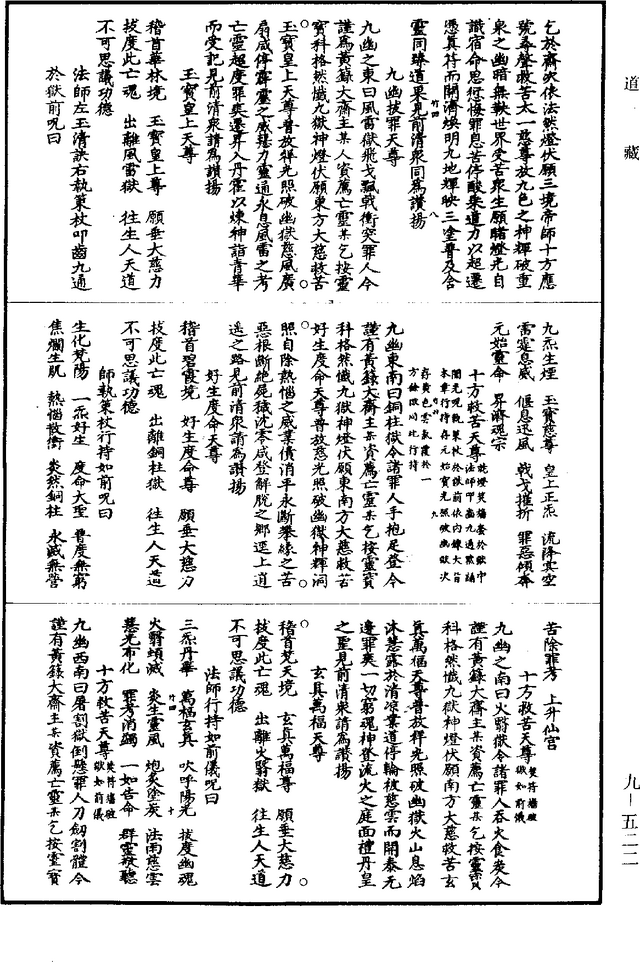 道藏
乞於齋次依法然燈伏願三境帝師十方應
號尋聲救苦太一慈尊放九色之神輝破重
泉之幽暗無鞅世界受苦衆生願睹燈光自
識宿命思愆悔罪息苦停酸乘道力以超遷
憑真符而開濟煥明九地輝映三塗普及含
靈同臻道果見前清衆同為讚揚
九幽拔罪天尊
九幽之東曰風雷獄飛戈飄戟衝突罪人今
謹為黃籙大齋主某人資薦亡靈某乞按靈
寶科格然懺九獄神燈伏願東方大慈救苦
玉寶皇上天尊普放祥光照破幽獄慈風廣
扇咸停霹靂之威慧力靈通永息風雷之考
亡靈超度罪爽遷昇入丹霍以煉神詣青華
而受記見前清衆請為讚揚
玉寶皇上天尊
稽首華林境 玉寶皇上尊 願垂大慈力
拔度此亡魂 出離風雷獄 往生人天道
不可思議功德
法師左玉清訣右執策杖叩齒九通
於獄前呪曰
九炁生煙 玉寶慈尊 皇上正炁 流降寘空
雷霆息威 偃息迅風 戟戈摧折 罪惡傾奔
元始靈命 昇濟魂宗
十方救苦天尊
九幽東南曰銅柱獄令諸罪人手抱足登今
謹有黃籙大齋主某資薦亡靈某乞按靈寶
科格然懺九獄神燈伏願東南方大慈救苦
好生度命天尊普放慈光照破幽獄神輝洞
照自除熱惱之威業債消平永斷攀緣之苦
惡根斷絕屍穢沈零咸登解脫之鄉逕上道
遙之路見前清衆請為讚揚
好生度命天尊
稽首碧霞境 好生度命尊 願垂大慈力
拔度此亡魂 出離銅柱獄 往生人天道
不可思議功德
師執策杖行持如前呪曰
生化梵陽 一炁好生 度命大聖 普度無窮
焦爛生肌 熱惱散衝 炎然銅柱 永滅無營
苦除罪考 上升仙宮
十方救苦天尊
九幽之南曰火翳獄令諸罪人吞火食炎今
謹有黃籙大齋主某資薦亡靈某乞按靈寶
科格然懺九獄神燈伏願南方大慈救苦玄
真萬福天尊普放祥光照破幽獄火山息焰
沐慧露於清涼業道停輪被慈雲而開泰無
邊罪爽一切窮魂神登流火之庭面禮丹皇
之聖見前清衆請為讚揚
玄真萬福天尊
稽首梵天境 玄真萬福尊 願垂大慈力
拔度此亡魂 出離火翳獄 往生人天道
不可思議功德
法師行持如前儀呪曰
三炁丹華 萬福玄真 吹呼陽光 拔度幽魂
火翳頓滅 炎生靈風 炮炙塗炭 法雨慈雲
慧光布化 罪考消蠲 一如告命 群靈禀聽
十方救苦天尊
九幽西南曰屠割獄倒懸罪人刀劒割體今
謹有黃籙大齋主某資薦亡靈某乞按靈寶
九-五二二